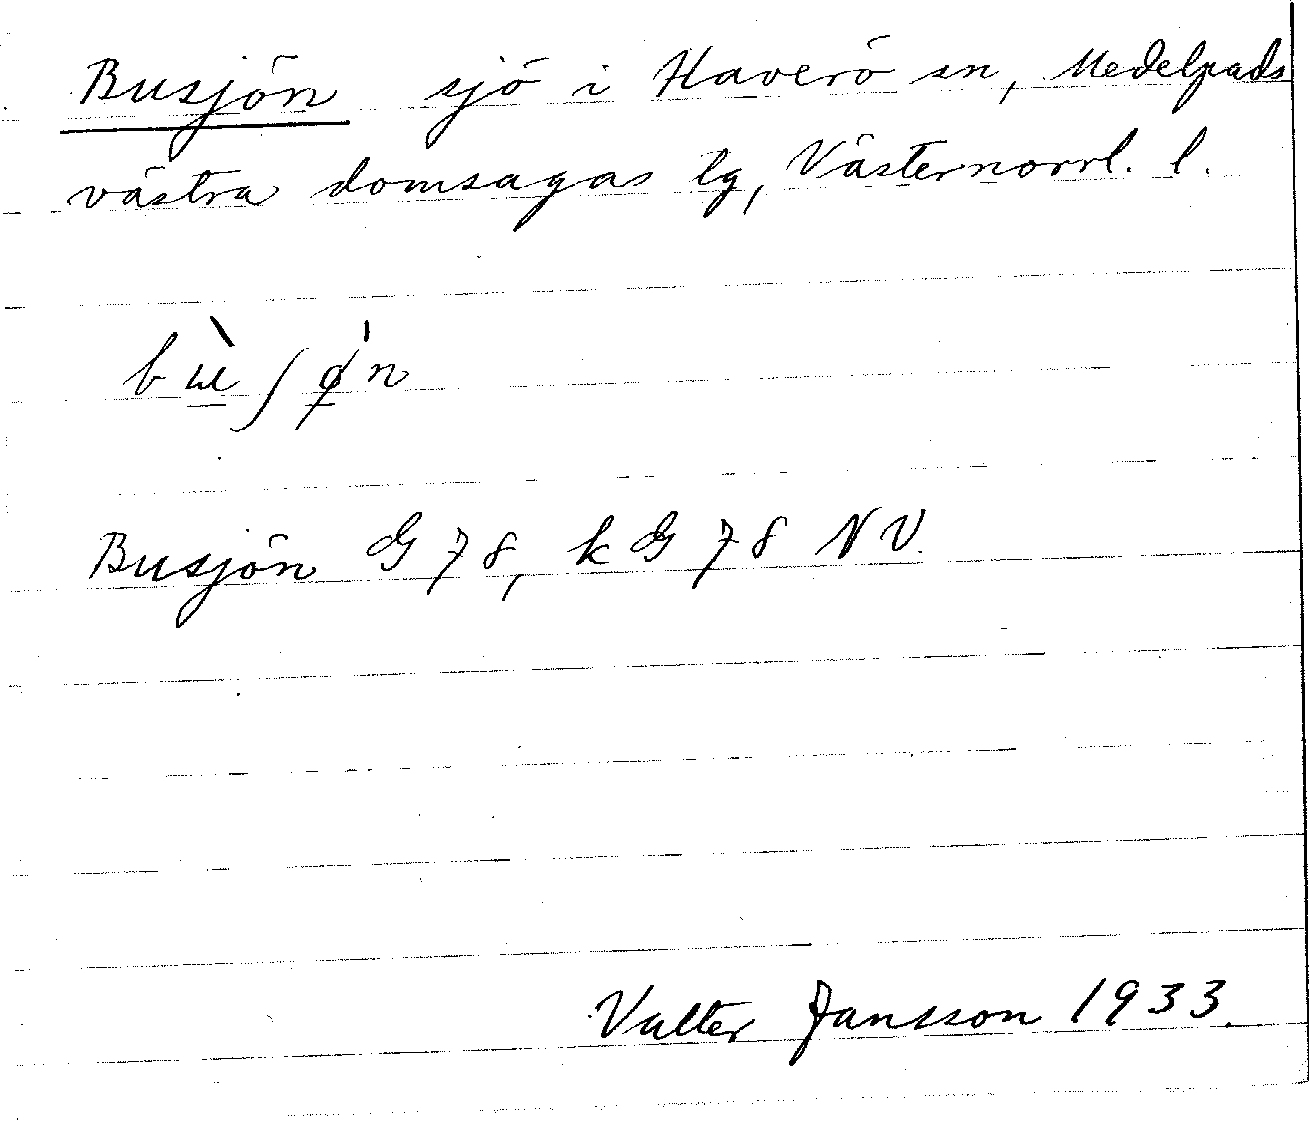 Busjön sjö i Haverö sn, Medelpads
västra domsagas lg, Västernorrl. l.
bɯ̀ʃø̍n
Busjön G 78, k G 78 NV.
Valter Jansson 1933.